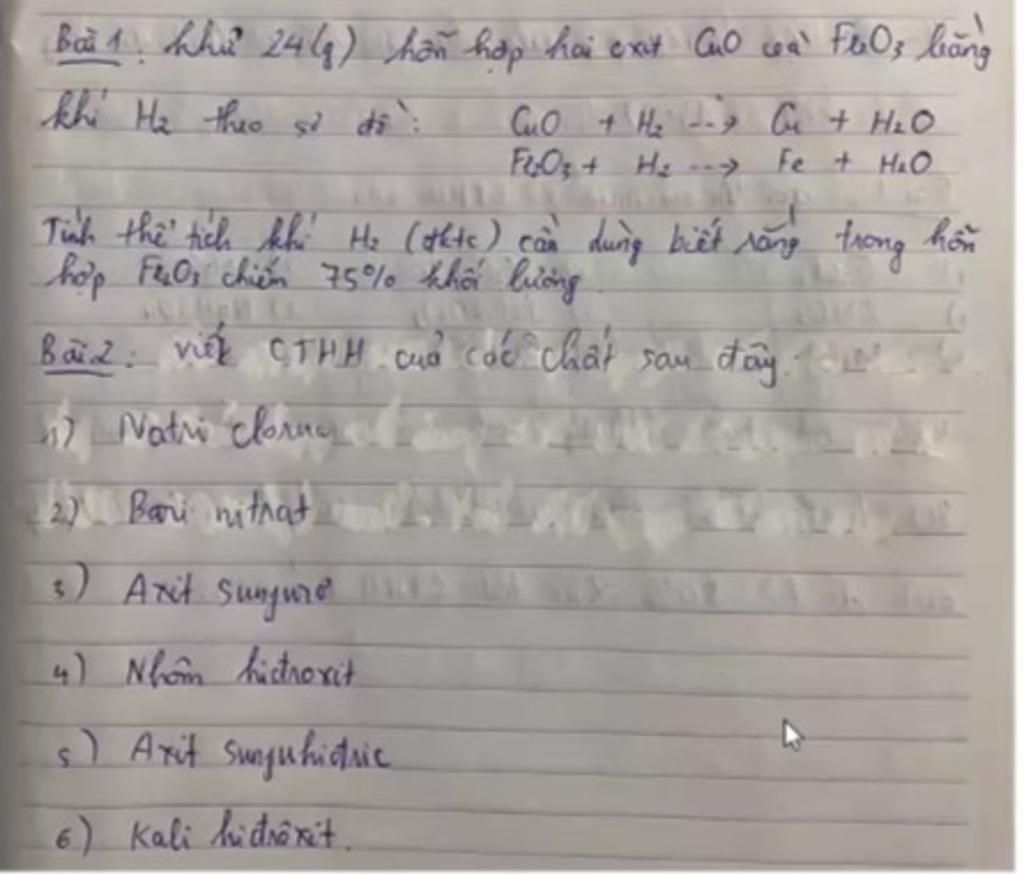 Bài 1: khử 24(g) hỗn hợp hai oxit CuO và Fe2O3 bằng
khí H2 theo sơ đồ: CuO + H2 --> Cu + H2O
Fe2O3 + H2 --> Fe + H2O
Tính thể tích khí H2 (đktc) cần dùng biết rằng trong hỗn
hợp Fe2O3 chiếm 75% khối lượng
Bài 2: viết CTHH của các chất sau đây
1) Natri clorua
2) Bari nitrat
3) Axit sunfurơ
4) Nhôm hiđroxit
5) Axit sunfuhiđric
6) Kali hiđrôxit.